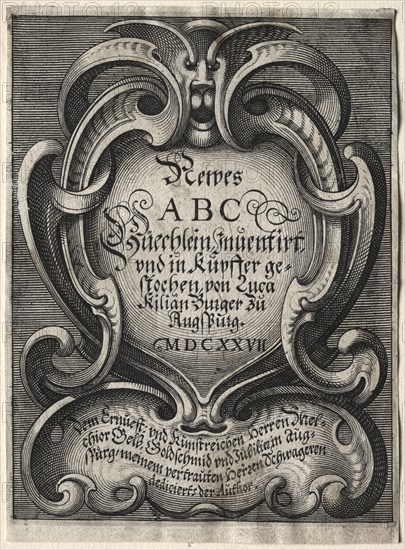 Newes
ABC
Büechlein Inuentirt
vnd in Kupffer ge-
stochen, von Luca
Kilian Burger zu
Augspurg.
MDCXXVII
Dem Ernuest: vnd Kunstreichen Herren Mel-
chior Gelb Goldschmid vnd Jubilirn Aug-
spurg, meinem vertrauten Herren Schwageren
dediciert der Author.